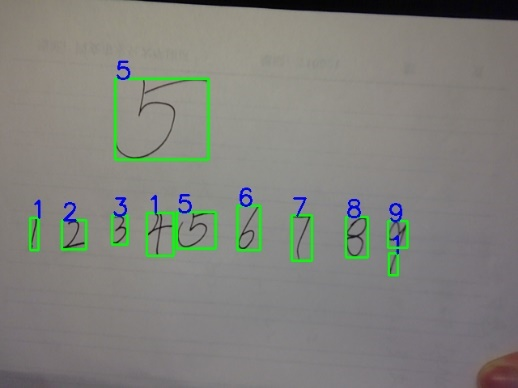 5
5
1 2 3 1 5 6 7 8 9
1 2 3 4 5 6 7 8 9
1